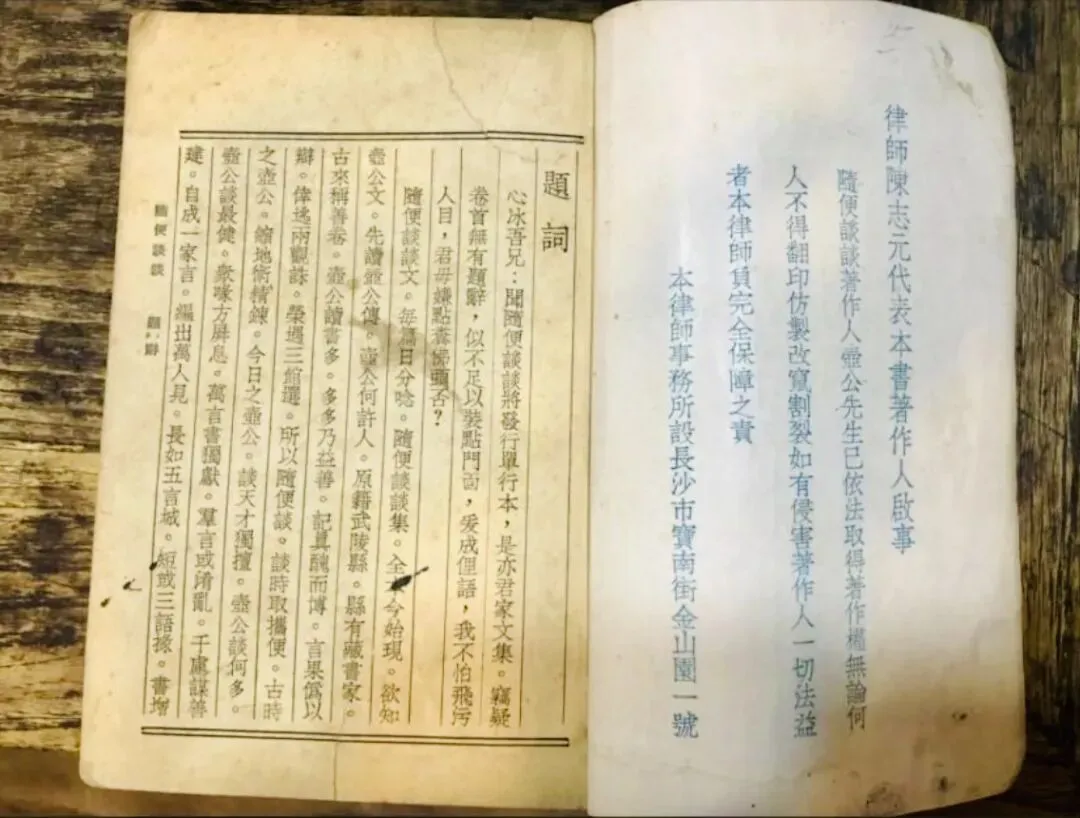 律師陳志元代表本書著作人啟事
隨便談談著作人壺公先生已依法取得著作權無論何
人不得翻印仿製改竄割裂如有侵害著作人一切法益
者本律師負完全保障之責
本律師事務所設長沙市寶南街金山園一號
題詞
心冰吾兄：聞隨便談談將發行單行本，是亦君家文集。竊疑
卷首無有題辭，似不足以裝點門面，爰成俚語，我不怕飛污
人目，君毋嫌點春佛頭否？
隨便談談文。每篇日分唸。隨便談談集。全本今始現。欲知
壺公文。先讀壺公傳。壺公何許人。原籍武陵縣。縣有藏書家。
古來稱善卷。壺公讀書多。多多乃益善。記真醜而博。言果偽以
辯。倖逃兩觀誅。榮過三館選。所以隨便談。談時取攜便。古時
之壺公。縮地術精鍊。今日之壺公。談天才獨擅。壺公談何多。
壺公談最健。衆咻方屏息。萬言書獨獻。羣言或淆亂。千慮謀善
建。自成一家言。編出萬人見。長如五言城。短或三語掾。書增
隨便談談　題辭